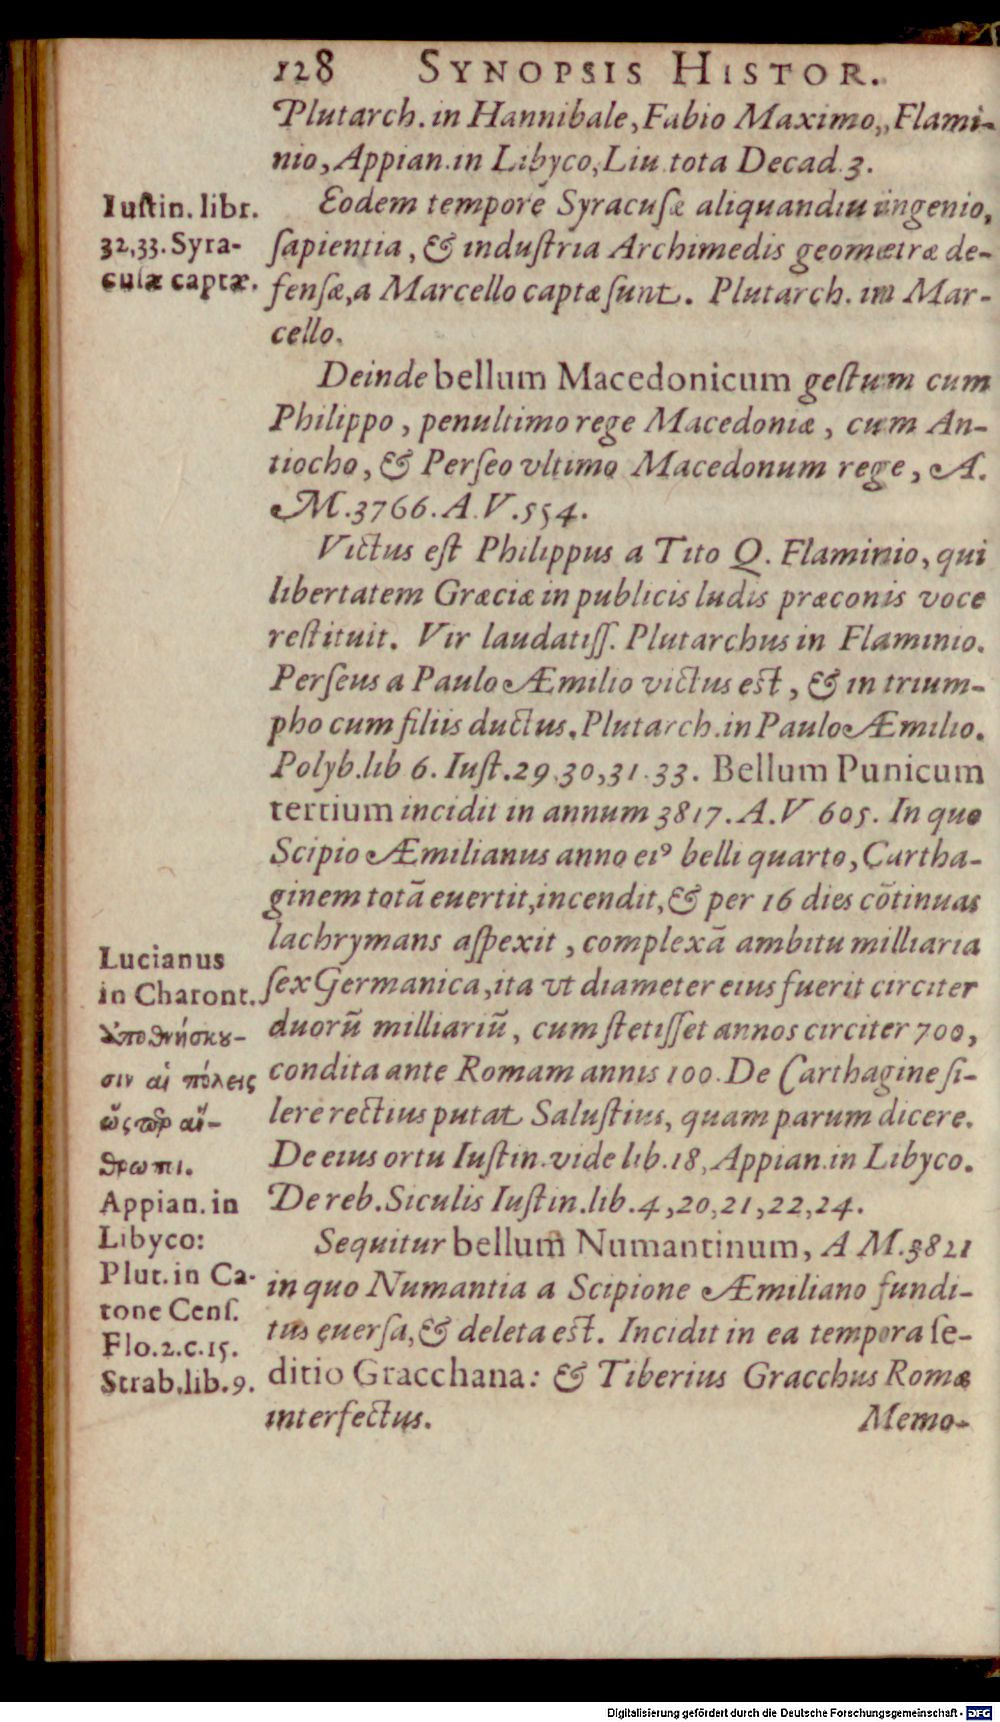 128 SYNOPSIS HISTOR.
Plutarch. in Hannibale, Fabio Maximo, Flami-
nio, Appian. in Libyco, Liu. tota Decad. 3.
Iuſtin. libr.
32, 33. Syra-
cuſæ captæ.
Eodem tempore Syracuſæ aliquandiu ingenio,
ſapientia, & induſtria Archimedis geometræ de-
fenſæ, a Marcello captæ ſunt. Plutarch. in Mar-
cello.
Deinde bellum Macedonicum geſtum cum
Philippo, penultimo rege Macedoniæ, cum An-
tiocho, & Perſeo vltimo Macedonum rege, A.
M. 3766. A. V. 554.
Victus eſt Philippus a Tito Q. Flaminio, qui
libertatem Græciæ in publicis ludis præconis voce
reſtituit. Vir laudatiſſ. Plutarchus in Flaminio.
Perſeus a Paulo Æmilio victus eſt, & in trium-
pho cum filiis ductus. Plutarch. in Paulo Æmilio.
Polyb. lib 6. Iuſt. 29. 30, 31. 33. Bellum Punicum
tertium incidit in annum 3817. A. V 605. In quo
Scipio Æmilianus anno eiꝰ belli quarto, Cartha-
ginem totā euertit, incendit, & per 16 dies cōtinuas
lachrymans aſpexit, complexā ambitu milliaria
ſex Germanica, ita vt diameter eius fuerit circiter
duorū milliariū, cum ſtetiſſet annos circiter 700,
condita ante Romam annis 100. De Carthagine ſi-
lere rectius putat Saluſtius, quam parum dicere.
De eius ortu Iuſtin. vide lib. 18, Appian. in Libyco.
De reb. Siculis Iuſtin. lib. 4, 20, 21, 22, 24.
Lucianus
in Charont.
Ἀποθνήσκȣ-
σιν αἱ πόλεις
ὥςπερ ἄν-
θρωποι.
Appian. in
Libyco:
Plut. in Ca-
tone Cenſ.
Flo. 2. c. 15.
Strab. lib. 9.
Sequitur bellum Numantinum, A M. 3821
in quo Numantia a Scipione Æmiliano fundi-
tus euerſa, & deleta eſt. Incidit in ea tempora ſe-
ditio Gracchana: & Tiberius Gracchus Romæ
interfectus. Memo-
Digitalisierung gefördert durch die Deutsche Forschungsgemeinschaft - DFG